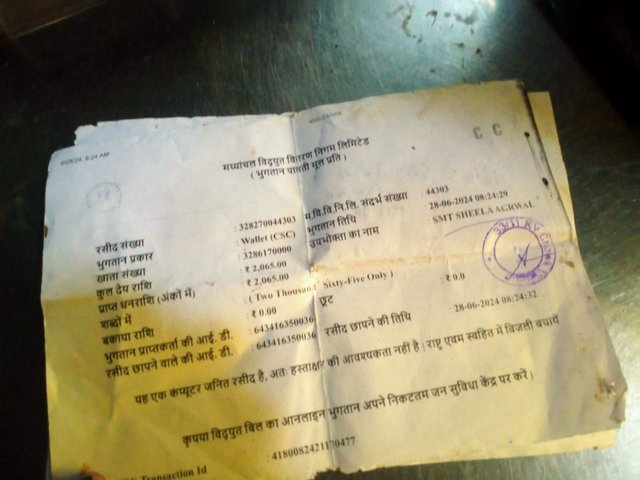 6/28/24, 8:24 AM
मध्यांचल विद्युत वितरण निगम लिमिटेड
( भुगतान पावती मूल प्रति )
रसीद संख्या : 328270044303 म.वि.वि.नि.लि. संदर्भ संख्या : 44303
भुगतान प्रकार : Wallet (CSC) भुगतान तिथि : 28-06-2024 08:24:29
खाता संख्या : 3286170000 उपभोक्ता का नाम : SMT SHEELA AGRWAL
कुल देय राशि : ₹ 2,065.00
प्राप्त धनराशि (अंकों में) : ₹ 2,065.00
शब्दों में : ( Two Thousand Sixty-Five Only )
बकाया राशि : ₹ 0.00 छूट : ₹ 0.0
भुगतान प्राप्तकर्ता की आई. डी. : 643416350036
रसीद छापने वाले की आई. डी. : 643416350036 रसीद छापने की तिथि : 28-06-2024 08:24:32
यह एक कंप्यूटर जनित रसीद है, अतः हस्ताक्षर की आवश्यकता नहीं है | राष्ट्र एवम स्वहित में बिजली बचायें
कृपया विद्युत बिल का आनलाइन भुगतान अपने निकटतम जन सुविधा केंद्र पर करें |
Transaction Id : 4180082421170477